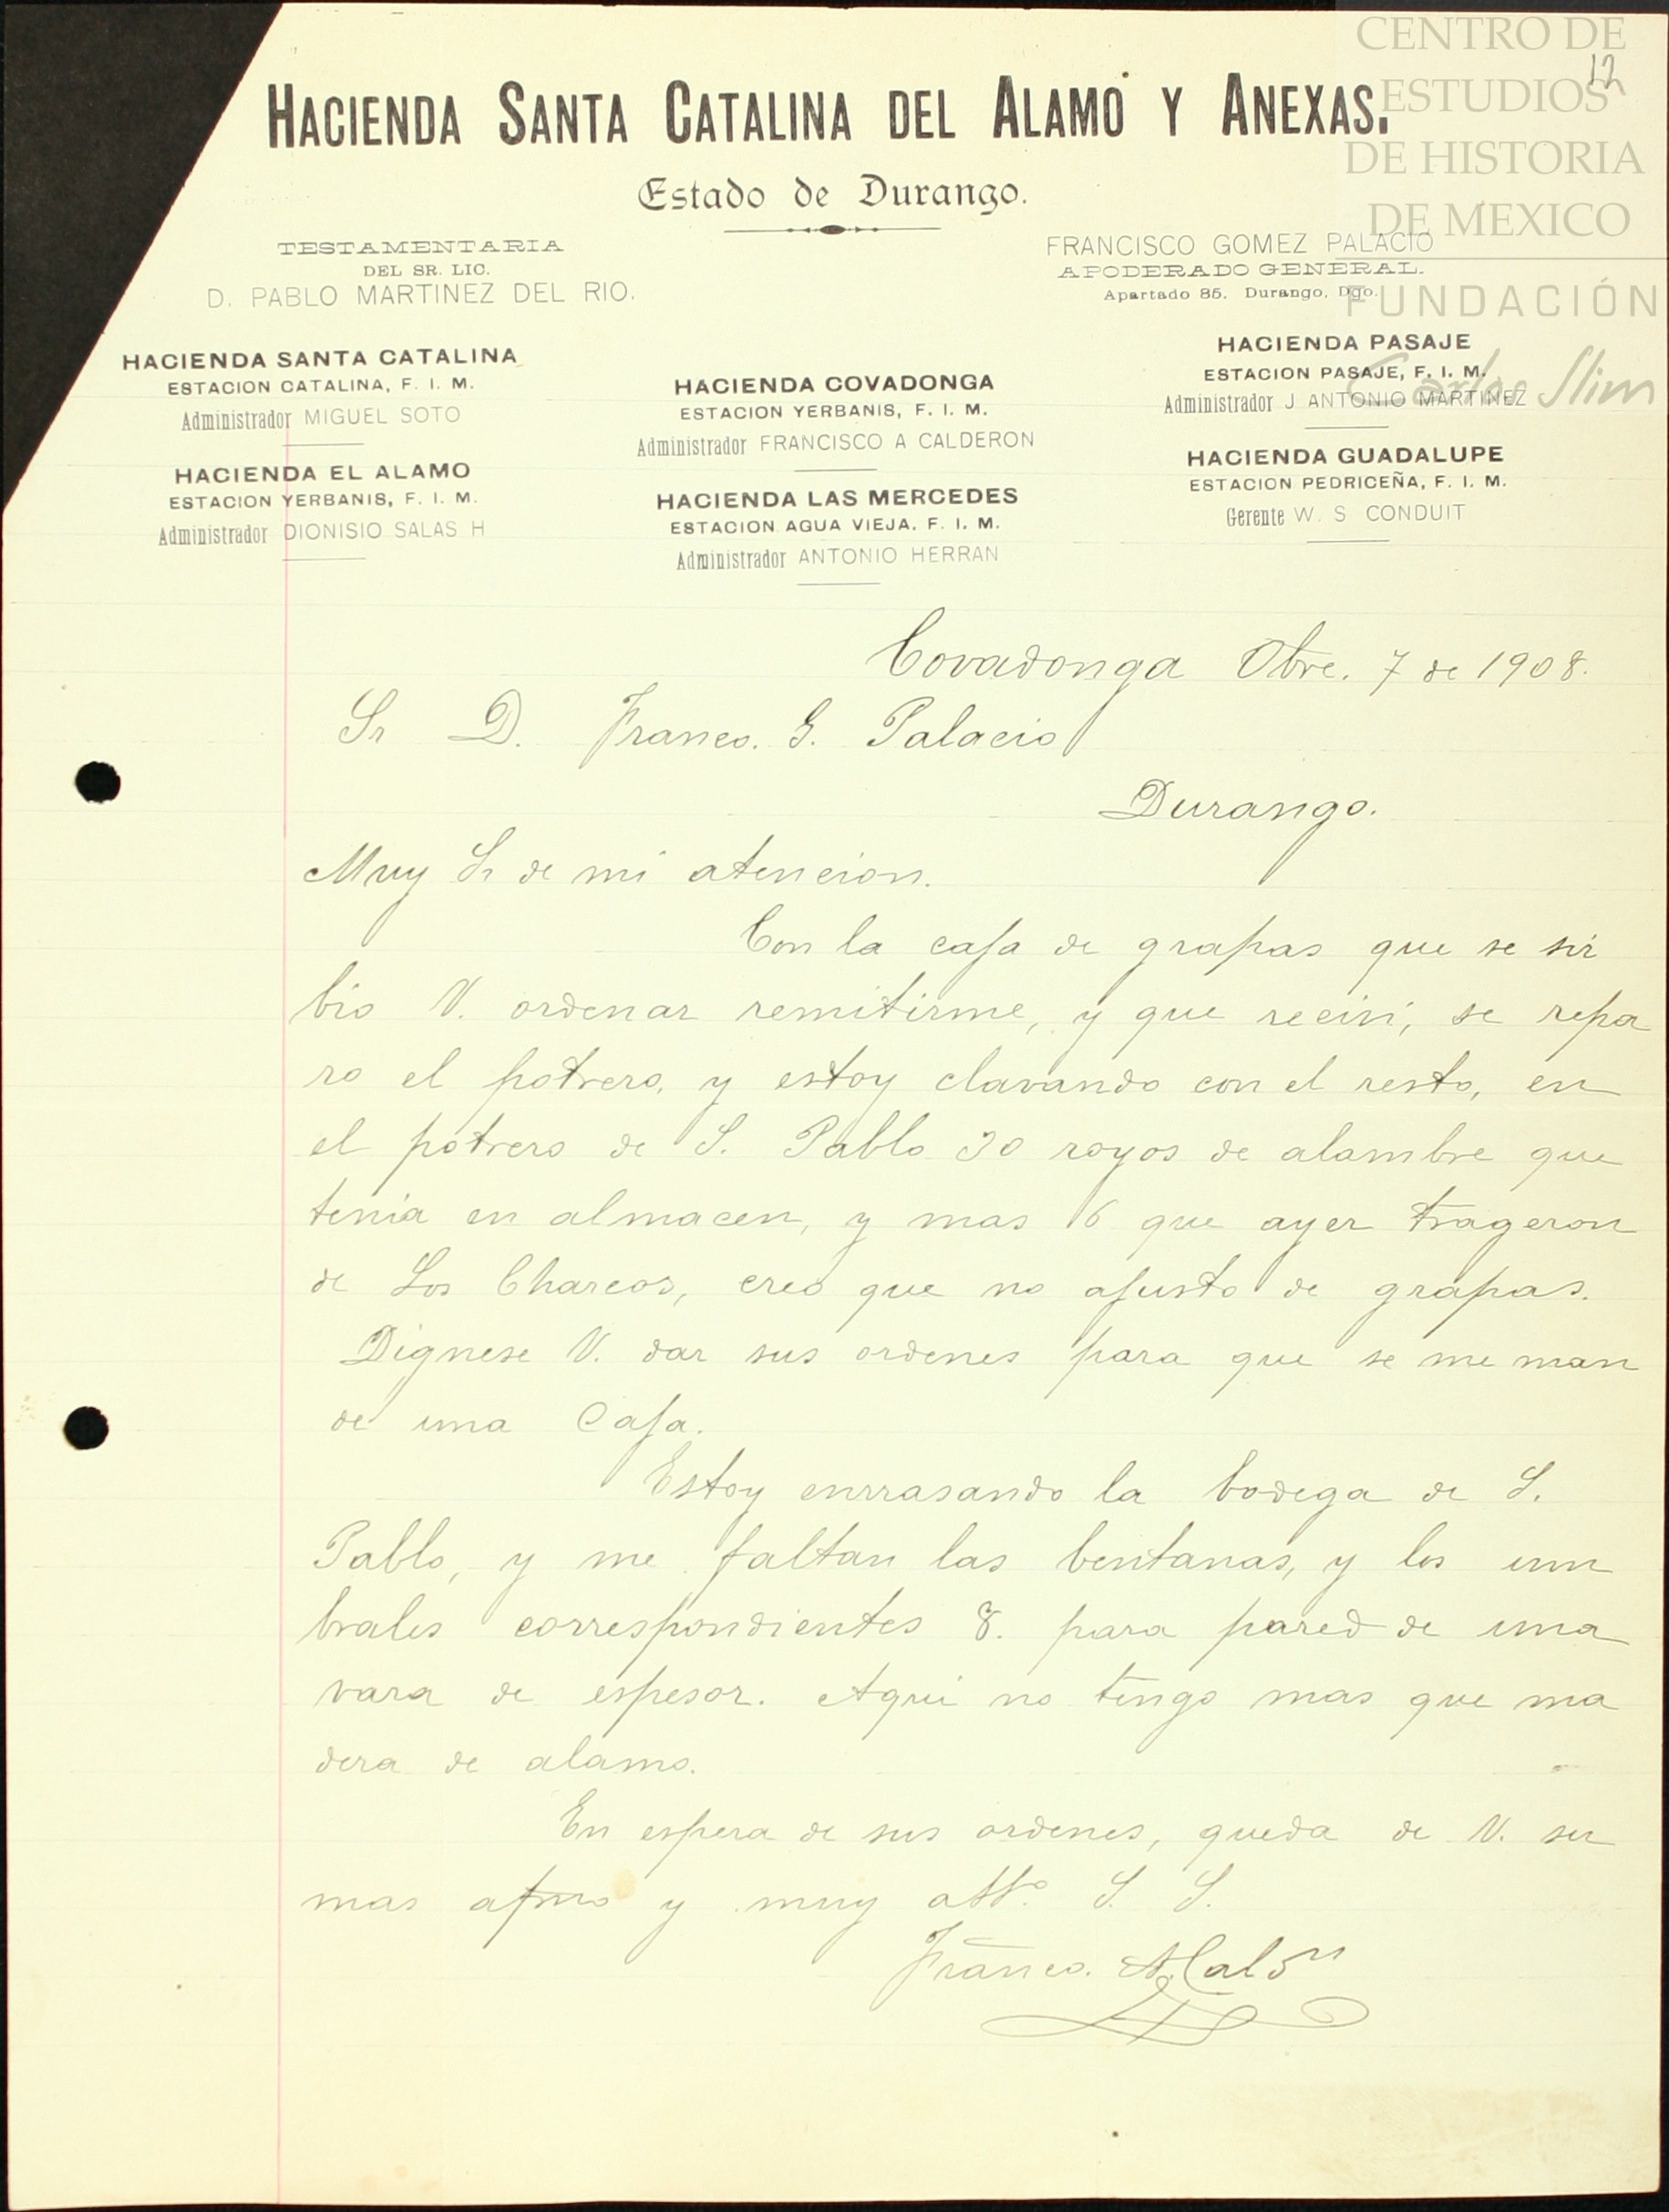 CENTRO DE
ESTUDIOS
DE HISTORIA
DE MEXICO
FUNDACIÓN
Carlos Slim
12
HACIENDA SANTA CATALINA DEL ALAMO Y ANEXAS.
Estado de Durango.
TESTAMENTARIA
DEL SR. LIC.
D. PABLO MARTINEZ DEL RIO.
FRANCISCO GOMEZ PALACIO
APODERADO GENERAL.
Apartado 85. Durango, Dgo.
HACIENDA SANTA CATALINA
ESTACION CATALINA, F. I. M.
Administrador MIGUEL SOTO
HACIENDA EL ALAMO
ESTACION YERBANIS, F. I. M.
Administrador DIONISIO SALAS H
HACIENDA COVADONGA
ESTACION YERBANIS, F. I. M.
Administrador FRANCISCO A CALDERON
HACIENDA LAS MERCEDES
ESTACION AGUA VIEJA. F. I. M.
Administrador ANTONIO HERRAN
HACIENDA PASAJE
ESTACION PASAJE, F. I. M.
Administrador J ANTONIO MARTINEZ
HACIENDA GUADALUPE
ESTACION PEDRICEÑA, F. I. M.
Gerente W. S CONDUIT
Covadonga Obre. 7 de 1908.
Sr D. Franco. G. Palacio
Durango.
Muy Sr de mi atencion.
Con la caja de grapas que se sir
bio V. ordenar remitirme, y que reciví, se repa
ro el potrero, y estoy clavando con el resto, en
el potrero de S. Pablo 30 royos de alambre que
tenia en almacen, y mas 16 que ayer trageron
de Los Charcos, creo que no ajusto de grapas.
Dignese V. dar sus ordenes para que se me man
de una Caja.
Estoy enrrasando la bodega de S.
Pablo, y me faltan las bentanas, y los um
brales correspondientes 8. para pared de una
vara de espesor. Aqui no tengo mas que ma
dera de alamo.
En espera de sus ordenes, queda de V. su
mas afmo y muy atto. S. S.
Franco. A. Calon